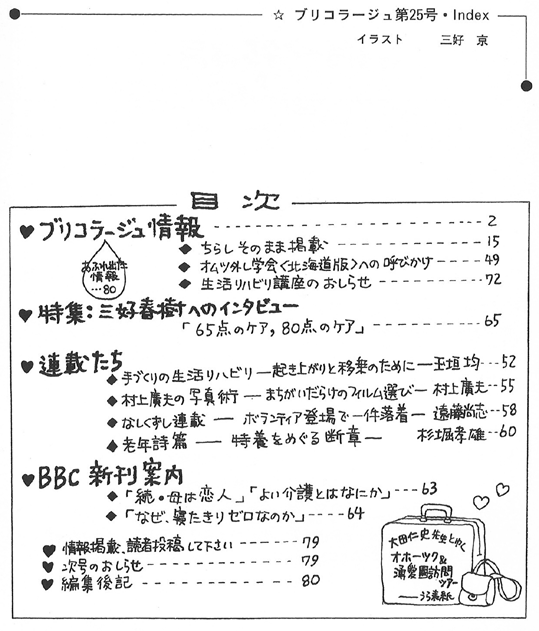 ☆ ブリコラージュ第25号・Index
イラスト 三好 京
目次
♥ ブリコラージュ情報 ---------- 2
◆ ちらし そのまま掲載 ---------- 15
◆ オムツ外し学会〈北海道版〉への呼びかけ ---- 49
◆ 生活リハビリ講座のおしらせ ------ 72
あふれ出た
情報
…80
♥ 特集:三好春樹へのインタビュー
「65点のケア,80点のケア」 ------ 65
♥ 連載たち
◆ 手づくりの生活リハビリ―起き上がりと移乗のために―玉垣 均---52
◆ 村上廣夫の写真術 ― まちがいだらけのフィルム選び― 村上廣夫--55
◆ なしくずし連載 ― ボランティア登場で一件落着― 遠藤尚志--58
◆ 老年詩篇 ― 特養をめぐる断章― 杉堀孝雄--60
♥ BBC 新刊案内
◆「続・母は恋人」「よい介護とはなにか」---63
◆「なぜ、寝たきりゼロなのか」----64
♥ 情報掲載、読者投稿して下さい ------ 79
♥ 次号のおしらせ ---------- 79
♥ 編集後記 ---------- 80
大田仁史先生とゆく
オホーツク&
湧愛園訪問
ツアー
――うら表紙